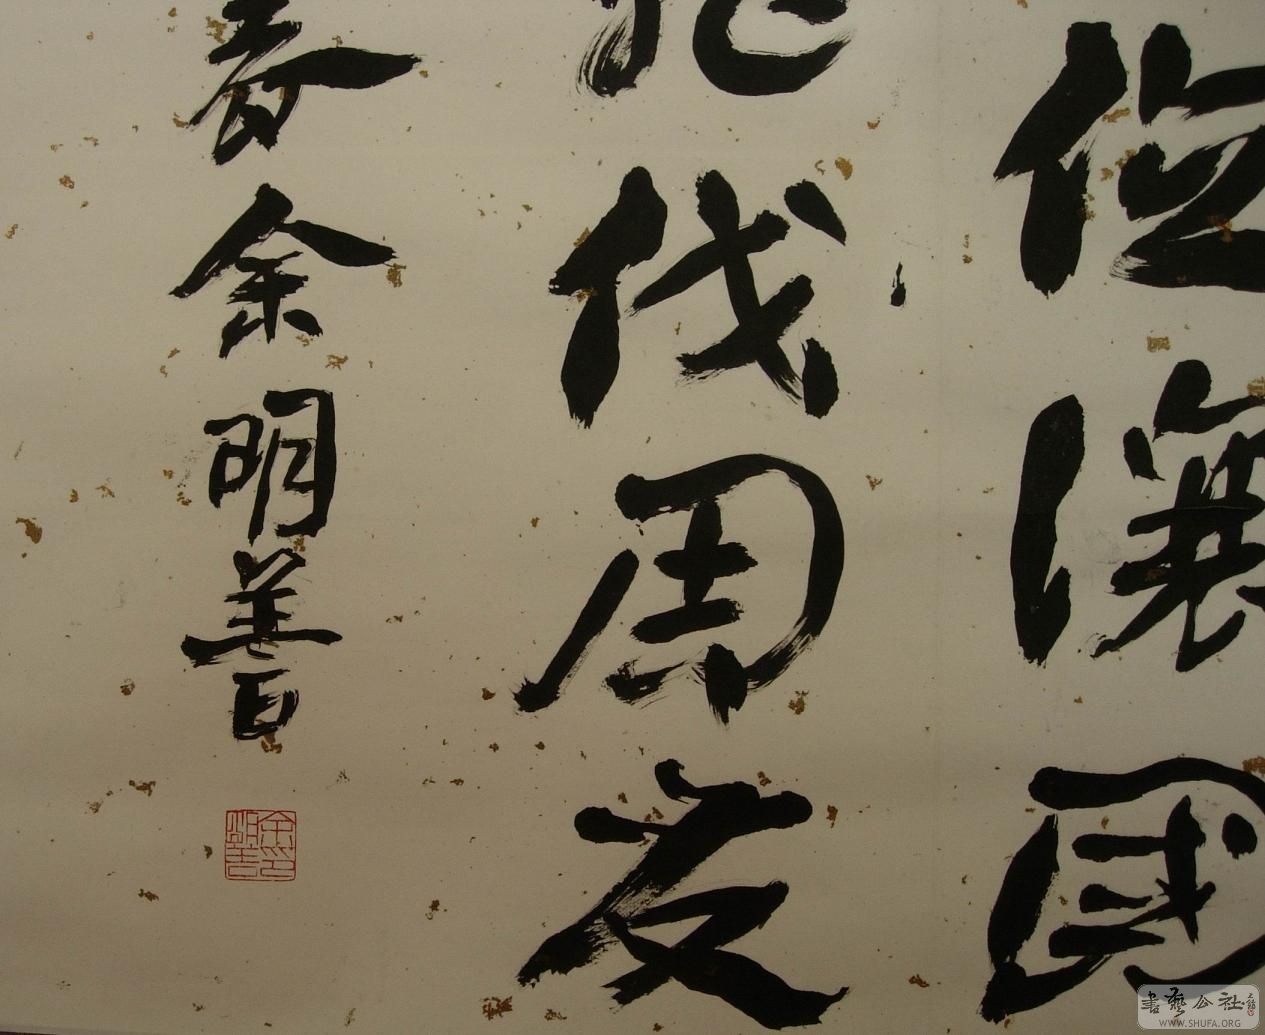 位讓國
伐周发
春余明善
書藝公社
WWW.SHUFA.ORG